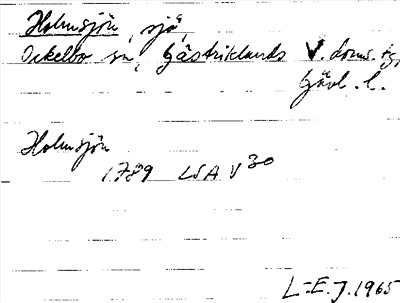 Holmsjön, sjö
Ockelbo sn, Gästriklands V. doms. tg,
Gävl. l.
Holmsjön
1789 LSA V30
L-E. J. 1965